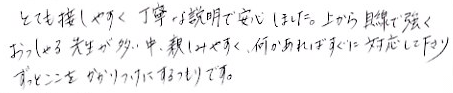 とても接しやすく丁寧な説明で安心しました。上から目線で強く
おっしゃる先生が多い中、親しみやすく、何かあればすぐに対応して下さり
ずっとここをかかりつけにするつもりです。